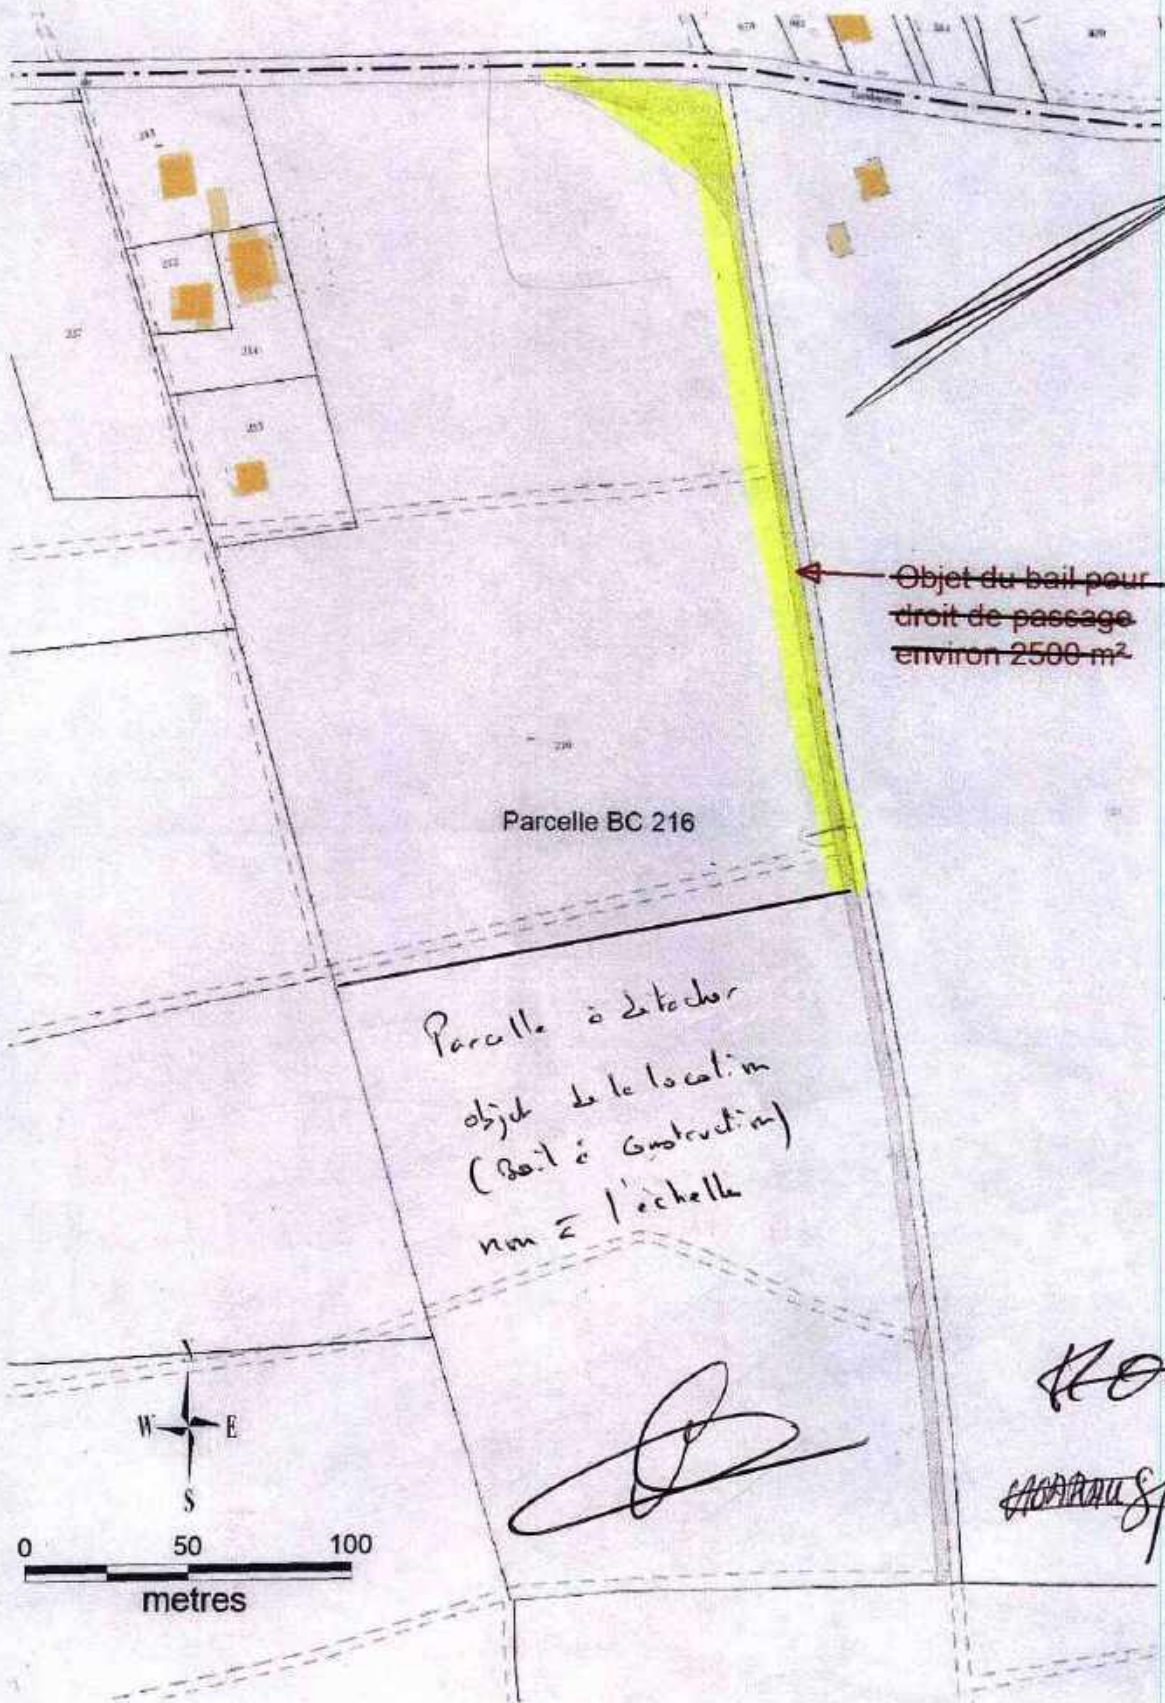 213
212
217
214
215
Objet du bail pour
droit de passage
environ 2500 m²
216
Parcelle BC 216
Parcelle à detacher
objet de la location
(Bail à construction)
non à l'échelle
W E
S
0 50 100
metres